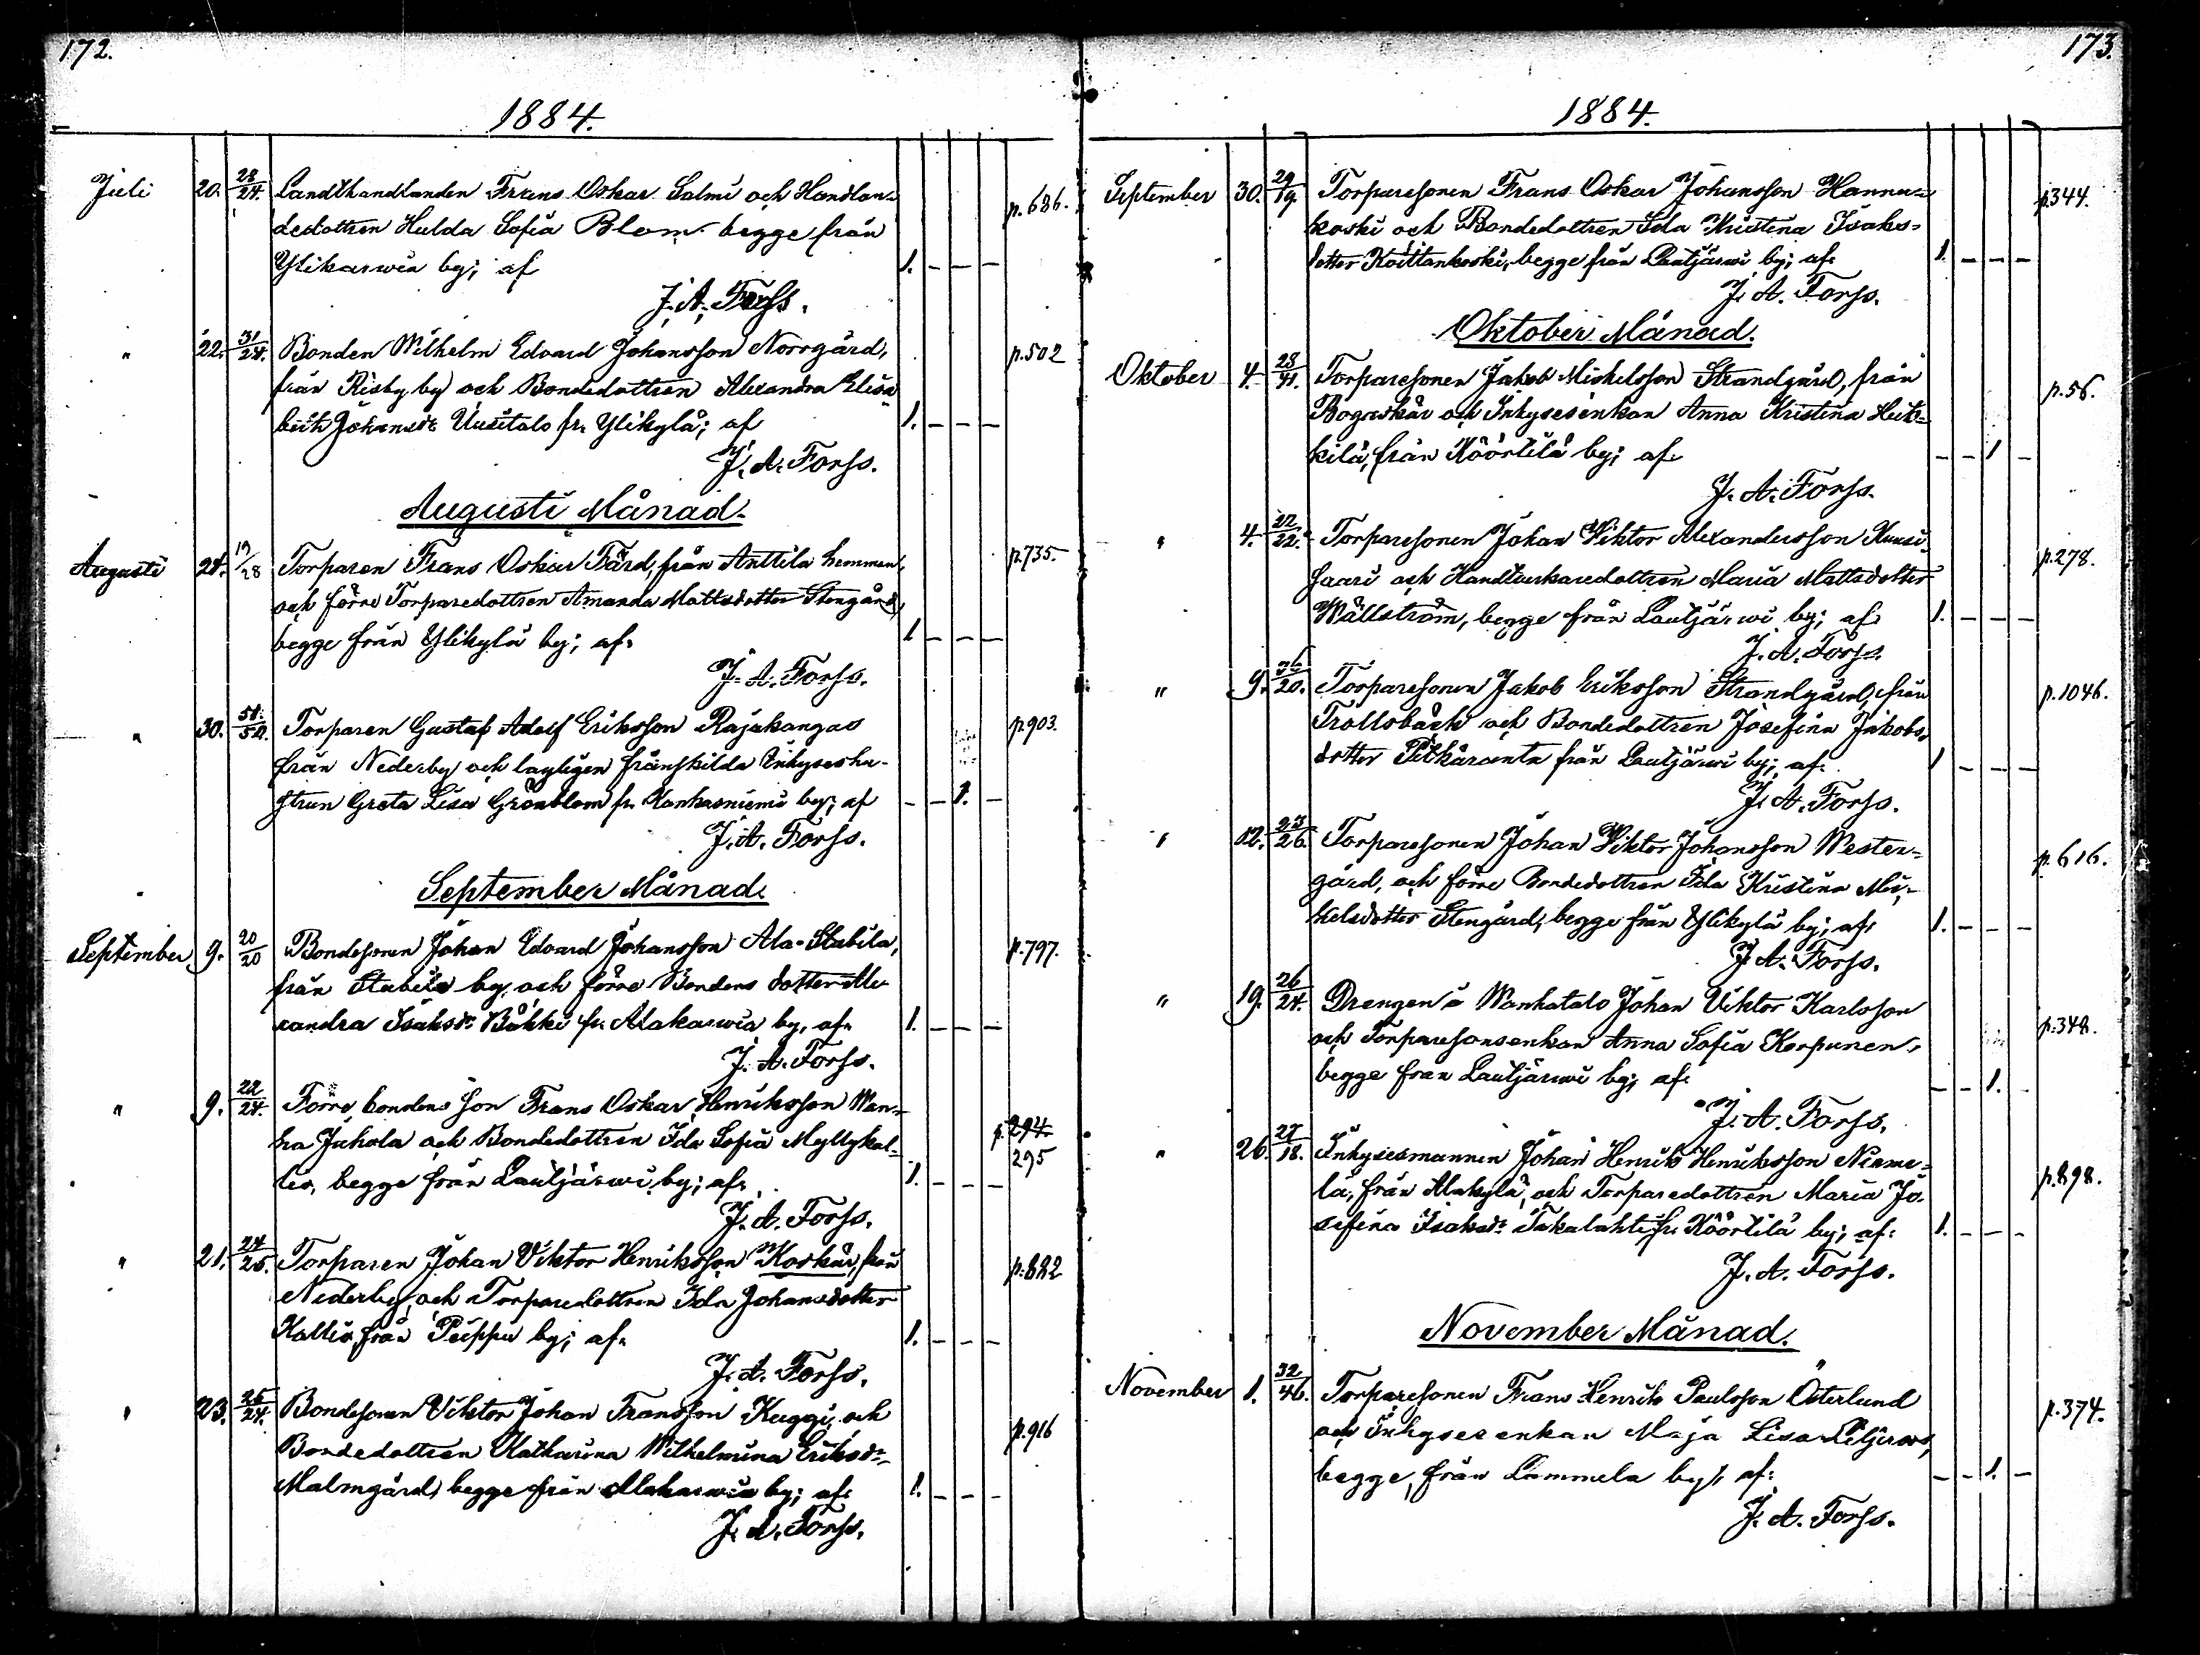 172.
1884.
Juli 20. 28/24. Landthandlanden Frans Oskar Salmi och Handlan- p. 686.
dedottren Hulda Sofia Blom begge från
Ylikarwia by; af 1. – – –
J. A. Forss.
" 22. 31/24. Bonden Wilhelm Edvard Johansson Norrgård, p. 502
från Risby by och Bondedottren Alexandra Elisa
beth Johansdr Uusitalo fr. Ylikylä; af 1. – – –
J. A. Forss.
Augusti Månad.
Augusti 24. 19/28 Torparen Frans Oskar Färd, från Anttila hemman, p. 735.
och förre Torparedottren Amanda Mattsdotter Stengård,
begge från Ylikylä by; af: 1 – – –
J. A. Forss.
" 30. Torparen Gustaf Adolf Eriksson Rajakangas p. 903.
från Nederby och lagligen frånskilda Inhyseshu-
strun Greta Lisa Grönblom fr. Kankasniemi by; af – – 1. –
J. A. Forss.
September Månad.
September 9. 20/20 Bondesonen Johan Edvard Johansson Ala-Stabila, p. 797.
från Stabila by, och förre Bondens dotter Ale-
xandra Isaksdr Båkki fr. Alakarwia by, af: 1. – – –
J. A. Forss.
" 9. 22/24. Förre bondens son Frans Oskar Henriksson Wan- p. 294.
ha Juhola och Bondedottren Ida Sofia Myllykal- 295
lio, begge från Lautjärwi by; af: 1. – – –
J. A. Forss.
" 21. 24/25. Torparen Johan Viktor Henriksson Korkär, från p. 882
Nederby, och Torparedottren Ida Johansdotter
Kallio, från Peippu by; af: 1. – – –
J. A. Forss.
" 23. 25/24. Bondesonen Viktor Johan Fransson Kuggi, och p. 916
Bondedottren Katharina Wilhelmina Eriksdr
Malmgård, begge från Alakarwia by; af: 1. – – –
J. A. Forss.
173.
1884.
September 30. 29/19. Torparesonen Frans Oskar Johansson Hannu- p. 344.
koski och Bondedottren Ida Kristina Isaks-
dotter Koittankoski, begge från Lautjärwi by; af: 1. – – –
J. A. Forss.
Oktober Månad.
Oktober 4. 28/41. Torparesonen Jakob Mickelsson Strandgård, från p. 56.
Bogaskär och Inhysesenkan Anna Kristina Heik-
kilä, från Köörtilä by; af: – – 1 –
J. A. Forss.
" 4. 22/22. Torparesonen Johan Wiktor Alexandersson Kuusi- p. 278.
saari och Handtverkaredottren Maria Mattsdotter
Wällström, begge från Lautjärwi by; af: 1. – – –
J. A. Forss.
" 9. Torparesonen Jakob Eriksson Strandgård, från p. 1046.
Trollsbäck och Bondedottren Josefina Jakobs-
dotter Pitkäranta från Lautjärwi by; af: 1 – – –
J. A. Forss.
" 12. 23/26. Torparesonen Johan Wiktor Johansson Wester- p. 616.
gård, och förre Bondedottren Ida Kristina Mi-
kelsdotter Stengård, begge från Ylikylä by; af: 1. – – –
J. A. Forss.
" 19. 26/24. Drengen å Wanhatalo Johan Viktor Karlsson p. 348.
och Torparesonsenkan Anna Sofia Korpunen,
begge från Lautjärwi by; af: – – 1. –
J. A. Forss.
" 26. 27/18. Inhysesmannen Johan Henrik Henriksson Nieme- p. 898.
lä, från Alakylä, och Torparedottren Maria Jo-
sefina Isaksdr Takalahti, fr. Köörtilä by; af: 1. – – –
J. A. Forss.
November Månad.
November 1. 32/46. Torparesonen Frans Henrik Paulsson Österlund p. 374.
och Inhysesenkan Maja Lisa
begge från Lammela by; af: – – 1. –
J. A. Forss.